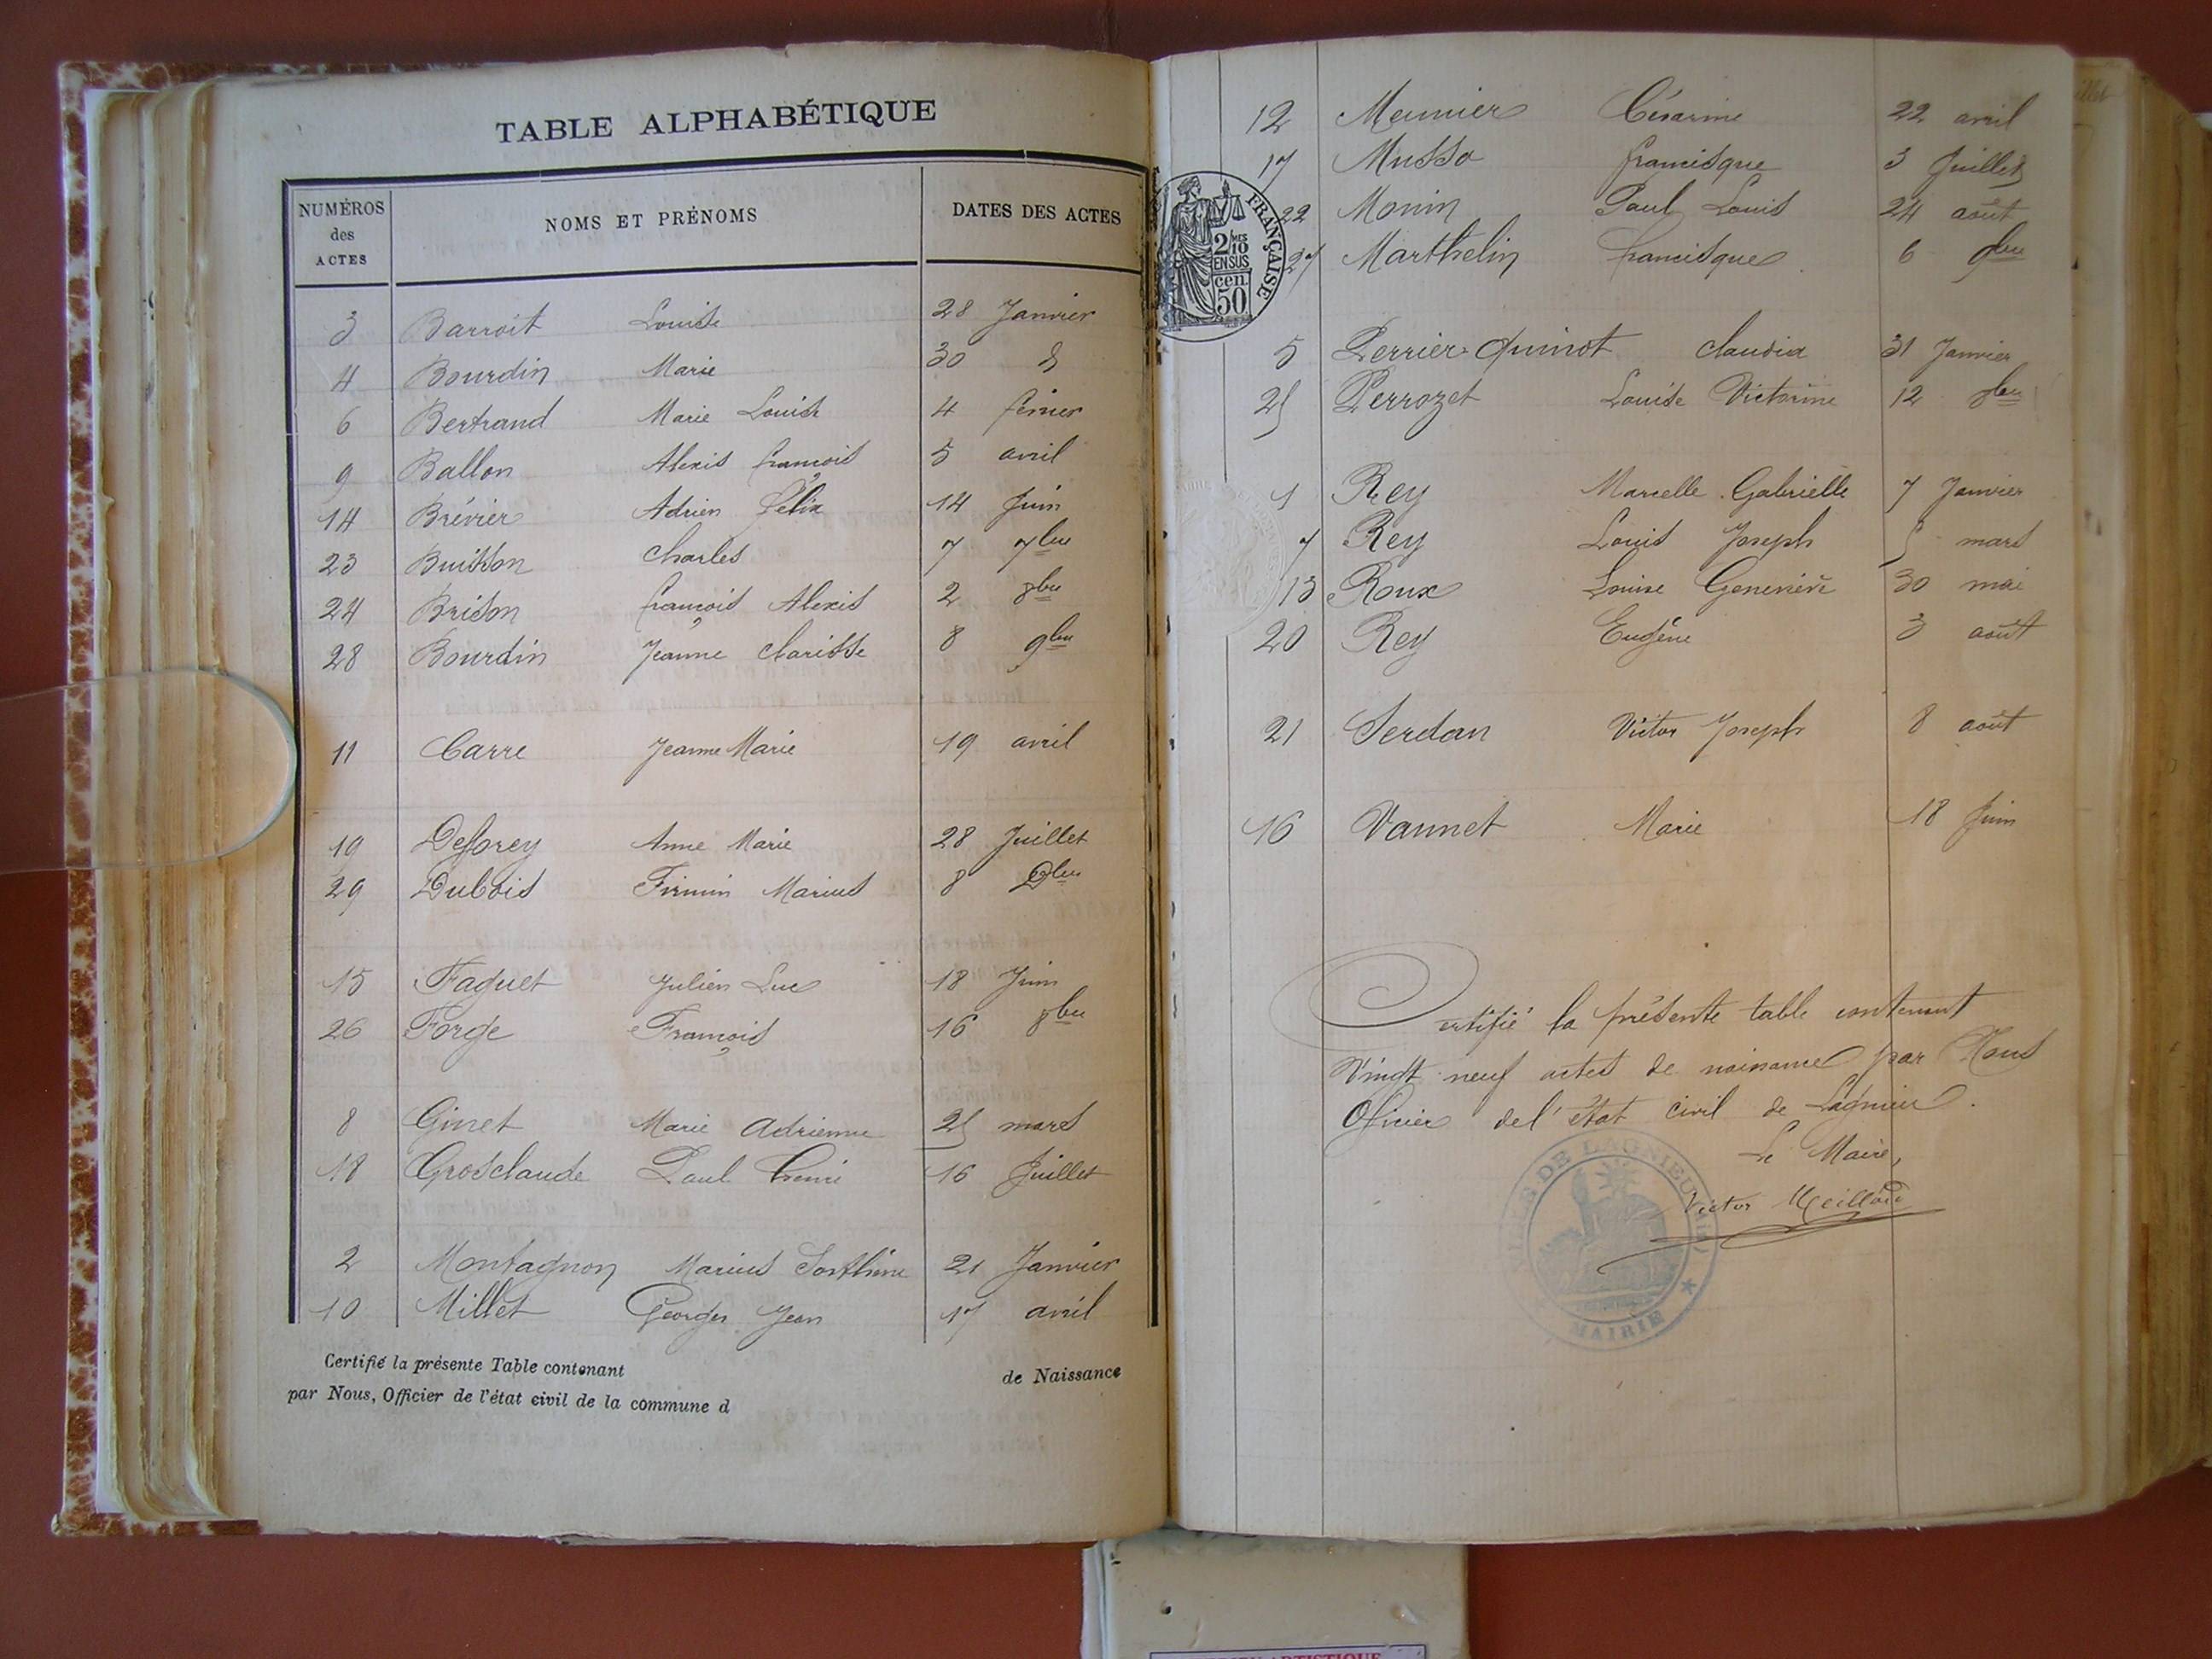 TABLE ALPHABÉTIQUE
NUMÉROS des ACTES NOMS ET PRÉNOMS DATES DES ACTES
3 Barroit Louise 28 Janvier
4 Bourdin Marie 30 d
6 Bertrand Marie Louise 4 février
9 Ballon Alexis françois 5 avril
14 Brévier Adrien Félix 14 Juin
23 Buisson Charles 7 7bre
24 Brison françois Alexis 2 8bre
28 Bourdin Jeanne Clarisse 8 9bre
11 Carre Jeanne Marie 19 avril
19 Deforey Anne Marie 28 Juillet
29 Dubois Firmin Marius 8 Dbre
15 Faguet Julien Luc 18 Juin
26 Forge François 16 8bre
8 Ginet Marie Adrienne 25 mars
18 Grosclaude Paul Henri 16 Juillet
2 Montagnon Marius Sosthène 21 Janvier
10 Millet Georges Jean 17 avril
Certifié la présente Table contenant de Naissance
par Nous, Officier de l'état civil de la commune d
12 Meunier Césarine 22 avril
17 Musso francisque 3 Juillet
22 Monin Paul Louis 24 août
27 Marthelin francisque 6 9bre
FRANÇAISE
2/10 MES
EN SUS
50 cen.
5 Perrier-Quinot Claudia 31 Janvier
25 Perrozet Louise Victorine 12 8bre
1 Rey Marcelle Gabrielle 7 Janvier
7 Rey Louis Joseph 5 mars
13 Roux Louise Geneviève 30 mai
20 Rey Eugène 3 août
21 Serdan Victor Joseph 8 août
16 Vannet Marie 18 Juin
Certifié la présente table contenant
Vingt neuf actes de naissance par Nous
Officier de l'état civil de Lagnieu.
Le Maire,
Victor
DE LAGNIEU
MAIRIE